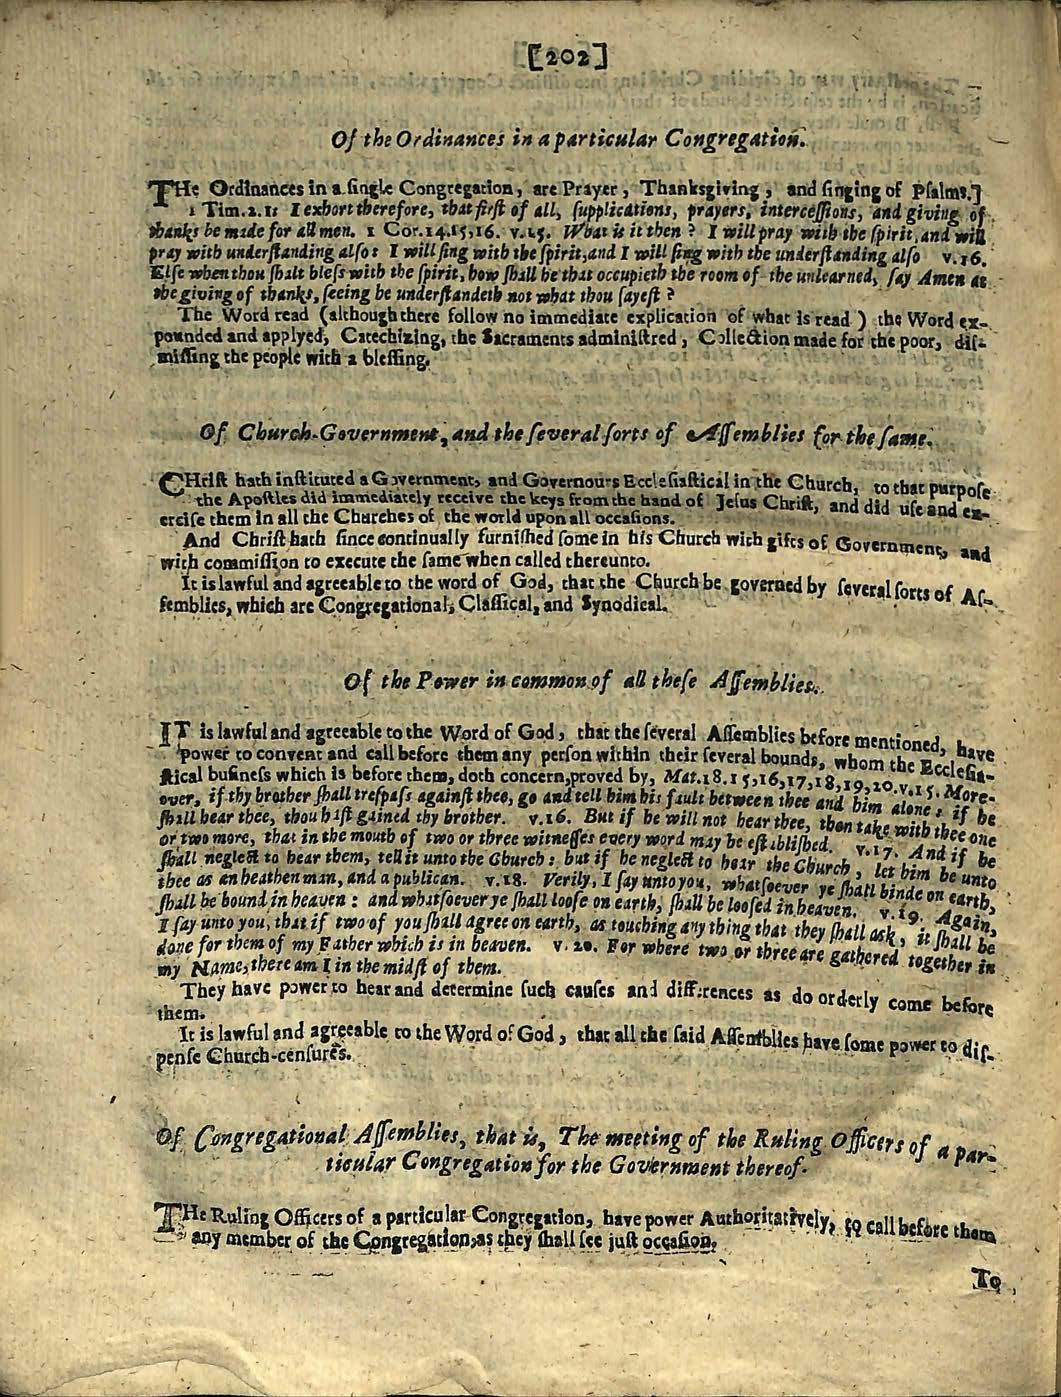 [202]
Of the Ordinances in a particular Congregation.
THe Ordinances in a single Congregation, are Prayer, Thanksgiving, and singing of Psalms.]
1 Tim.2.1: I exhort therefore, that first of all, supplications, prayers, intercessions, and giving of
thanks be made for all men. 1 Cor.14.15,16. v.15. What is it then? I will pray with the spirit, and will
pray with understanding also: I will sing with the spirit, and I will sing with the understanding also v.16.
Else when thou shalt bless with the spirit, how shall he that occupieth the room of the unlearned, say Amen at
the giving of thanks, seeing he understandeth not what thou sayest?
The Word read (although there follow no immediate explication of what is read) the Word ex-
pounded and applyed, Catechizing, the Sacraments administred, Collection made for the poor, dis-
missing the people with a blessing.
Of Church-Government, and the several sorts of Assemblies for the same.
CHrist hath instituted a Government, and Governours Ecclesiastical in the Church, to that purpose
the Apostles did immediately receive the keys from the hand of Jesus Christ, and did use and ex-
ercise them in all the Churches of the world upon all occasions.
And Christ hath since continually furnished some in his Church with gifts of Government, and
with commission to execute the same when called thereunto.
It is lawful and agreeable to the word of God, that the Church be governed by several sorts of As-
semblies, which are Congregational, Classical, and Synodical.
Of the Power in common of all these Assemblies.
IT is lawful and agreeable to the Word of God, that the several Assemblies before mentioned, have
power to convent and call before them any person within their several bounds, whom the Ecclesia-
stical business which is before them, doth concern, proved by, Mat.18.15,16,17,18,19,20.v.15. More-
over, if thy brother shall trespass against thee, go and tell him his fault between thee and him alone; if he
shall hear thee, thou hast gained thy brother. v.16. But if he will not hear thee, then take with thee one
or two more, that in the mouth of two or three witnesses every word may be established. v.17. And if he
shall neglect to hear them, tell it unto the Church: but if he neglect to hear the Church, let him be unto
thee as an heathen man, and a publican. v.18. Verily, I say unto you, whatsoever ye shall binde on earth,
shall be bound in heaven: and whatsoever ye shall loose on earth, shall be loosed in heaven. v.19. Again,
I say unto you, that if two of you shall agree on earth, as touching any thing that they shall ask, it shall be
done for them of my Father which is in heaven. v.20. For where two or three are gathered together in
my Name, there am I in the midst of them.
They have power to hear and determine such causes and differences as do orderly come before
them.
It is lawful and agreeable to the Word of God, that all the said Assemblies have some power to dis-
pense Church-censures.
Of Congregational Assemblies, that is, The meeting of the Ruling Officers of a par-
ticular Congregation for the Government thereof.
THe Ruling Officers of a particular Congregation, have power Authoritatively, to call before them
any member of the Congregation, as they shall see just occasion.
To